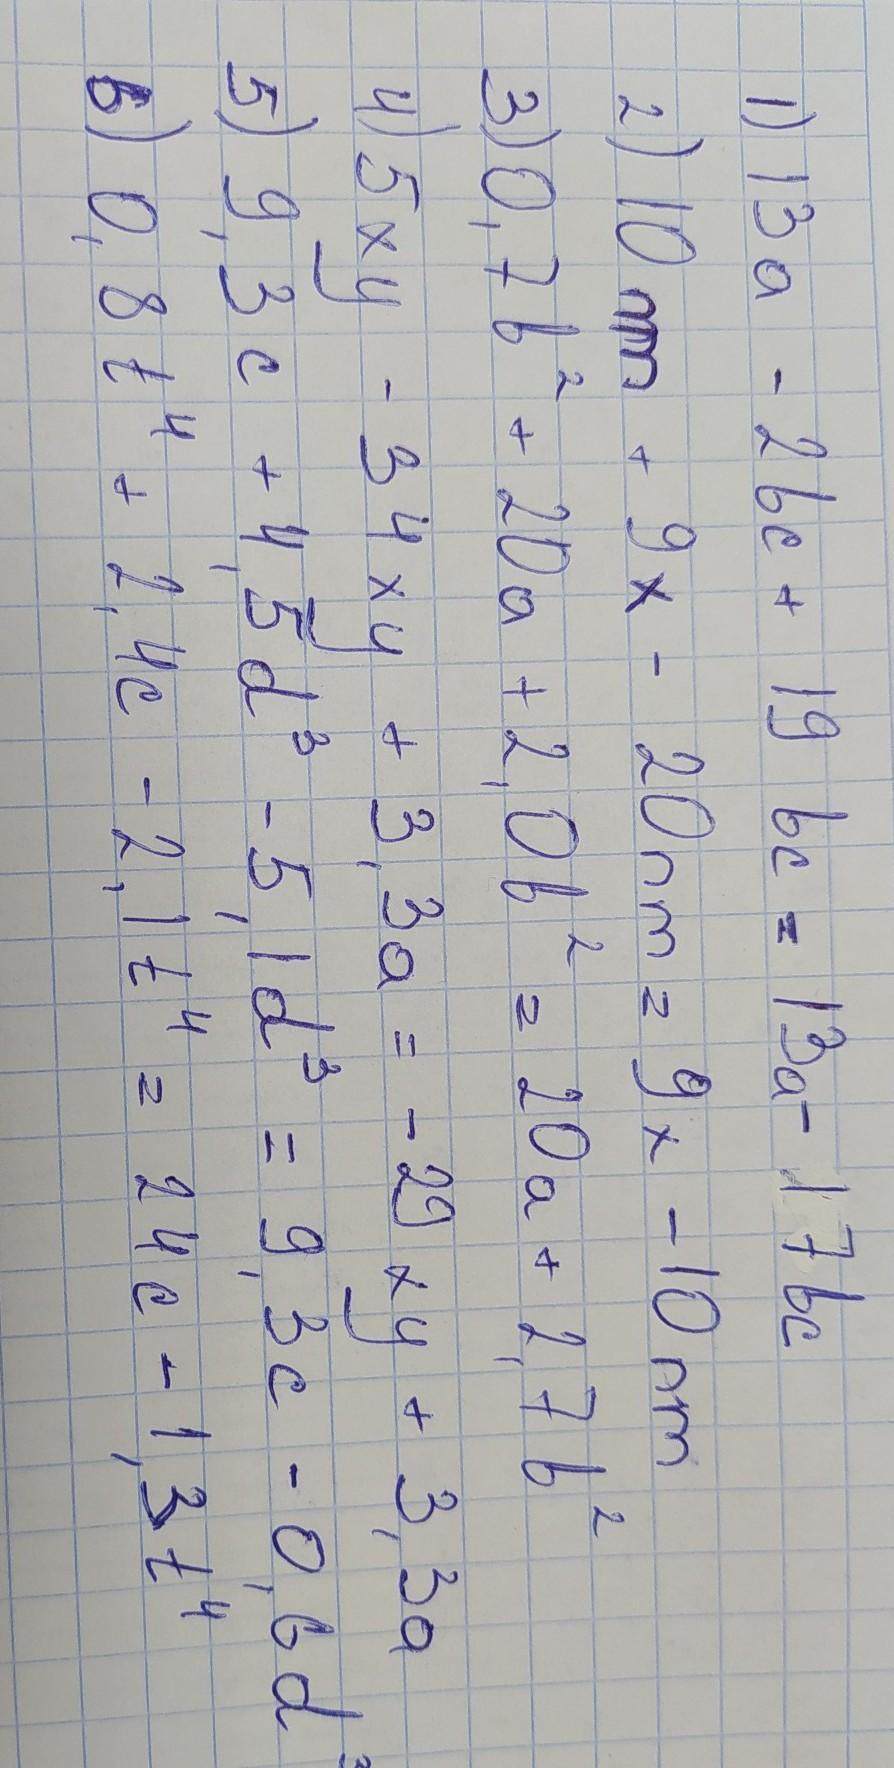 1) 13a - 2bc + 19 bc = 13a - 17bc
2) 10 nm + 9x - 20nm = 9x - 10nm
3) 0,7b² + 20a + 2,0b² = 20a + 2,7b²
4) 5xy - 34xy + 3,3a = - 29xy + 3,3a
5) 9,3c + 4,5d³ - 5,1d³ = 9,3c - 0,6d³
6) 0,8t⁴ + 2,4c - 2,1t⁴ = 24c - 1,3t⁴